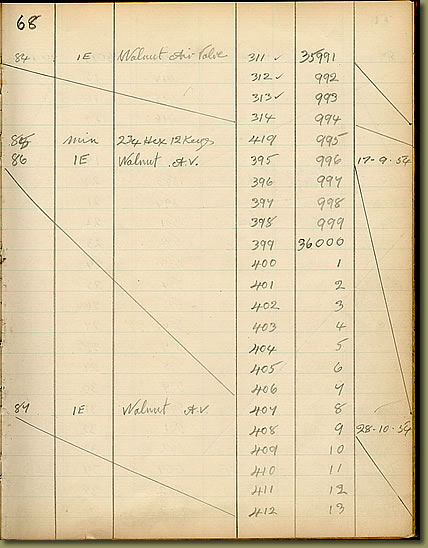 68
84 1E Walnut Air Valve 311 ✓ 35991
312 ✓ 992
313 ✓ 993
314 994
85 min 234 Hex 12 Keys 419 995
86 1E Walnut A.V. 395 996 17-9-54
396 997
397 998
398 999
399 36000
400 1
401 2
402 3
403 4
404 5
405 6
406 7
87 1E Walnut AV 407 8
408 9 28-10-54
409 10
410 11
411 12
412 13